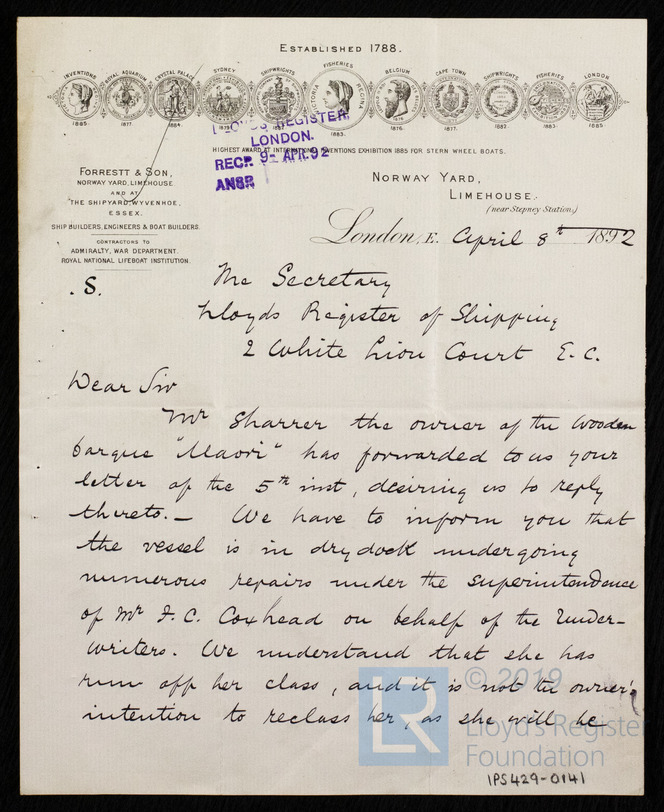 ESTABLISHED 1788.
INVENTIONS ROYAL AQUARIUM CRYSTAL PALACE SYDNEY SHIPWRIGHTS FISHERIES BELGIUM CAPE TOWN SHIPWRIGHTS FISHERIES LONDON
VICTORIA REGINA
1885. 1877. 1884. 1879. 1883. 1876. 1877. 1882. 1883. 1885.
LLOYD'S REGISTER,
LONDON.
RECD. 9- APR. 92
ANSR
HIGHEST AWARD AT INTERNATIONAL INVENTIONS EXHIBITION 1885 FOR STERN WHEEL BOATS.
FORRESTT & SON,
NORWAY YARD, LIMEHOUSE
AND AT
THE SHIPYARD, WYVENHOE,
ESSEX.
SHIP BUILDERS, ENGINEERS & BOAT BUILDERS.
CONTRACTORS TO
ADMIRALTY, WAR DEPARTMENT.
ROYAL NATIONAL LIFEBOAT INSTITUTION.
NORWAY YARD,
LIMEHOUSE.
(near Stepney Station)
London, E. April 8th 1892
. S.
The Secretary
Lloyds Register of Shipping
2 White Lion Court E.C.
Dear Sir
Mr Sharrer the owner of the wooden
barque "Maori" has forwarded to us your
letter of the 5th inst, desiring us to reply
thereto. — We have to inform you that
the vessel is in dry dock undergoing
numerous repairs under the superintendence
of Mr F. C. Coxhead on behalf of the Under-
writers. We understand that she has
run off her class, and it is not the owner's
intention to reclass her, as she will be
LR
© 2019
Lloyd's Register
Foundation
IPS429-0141